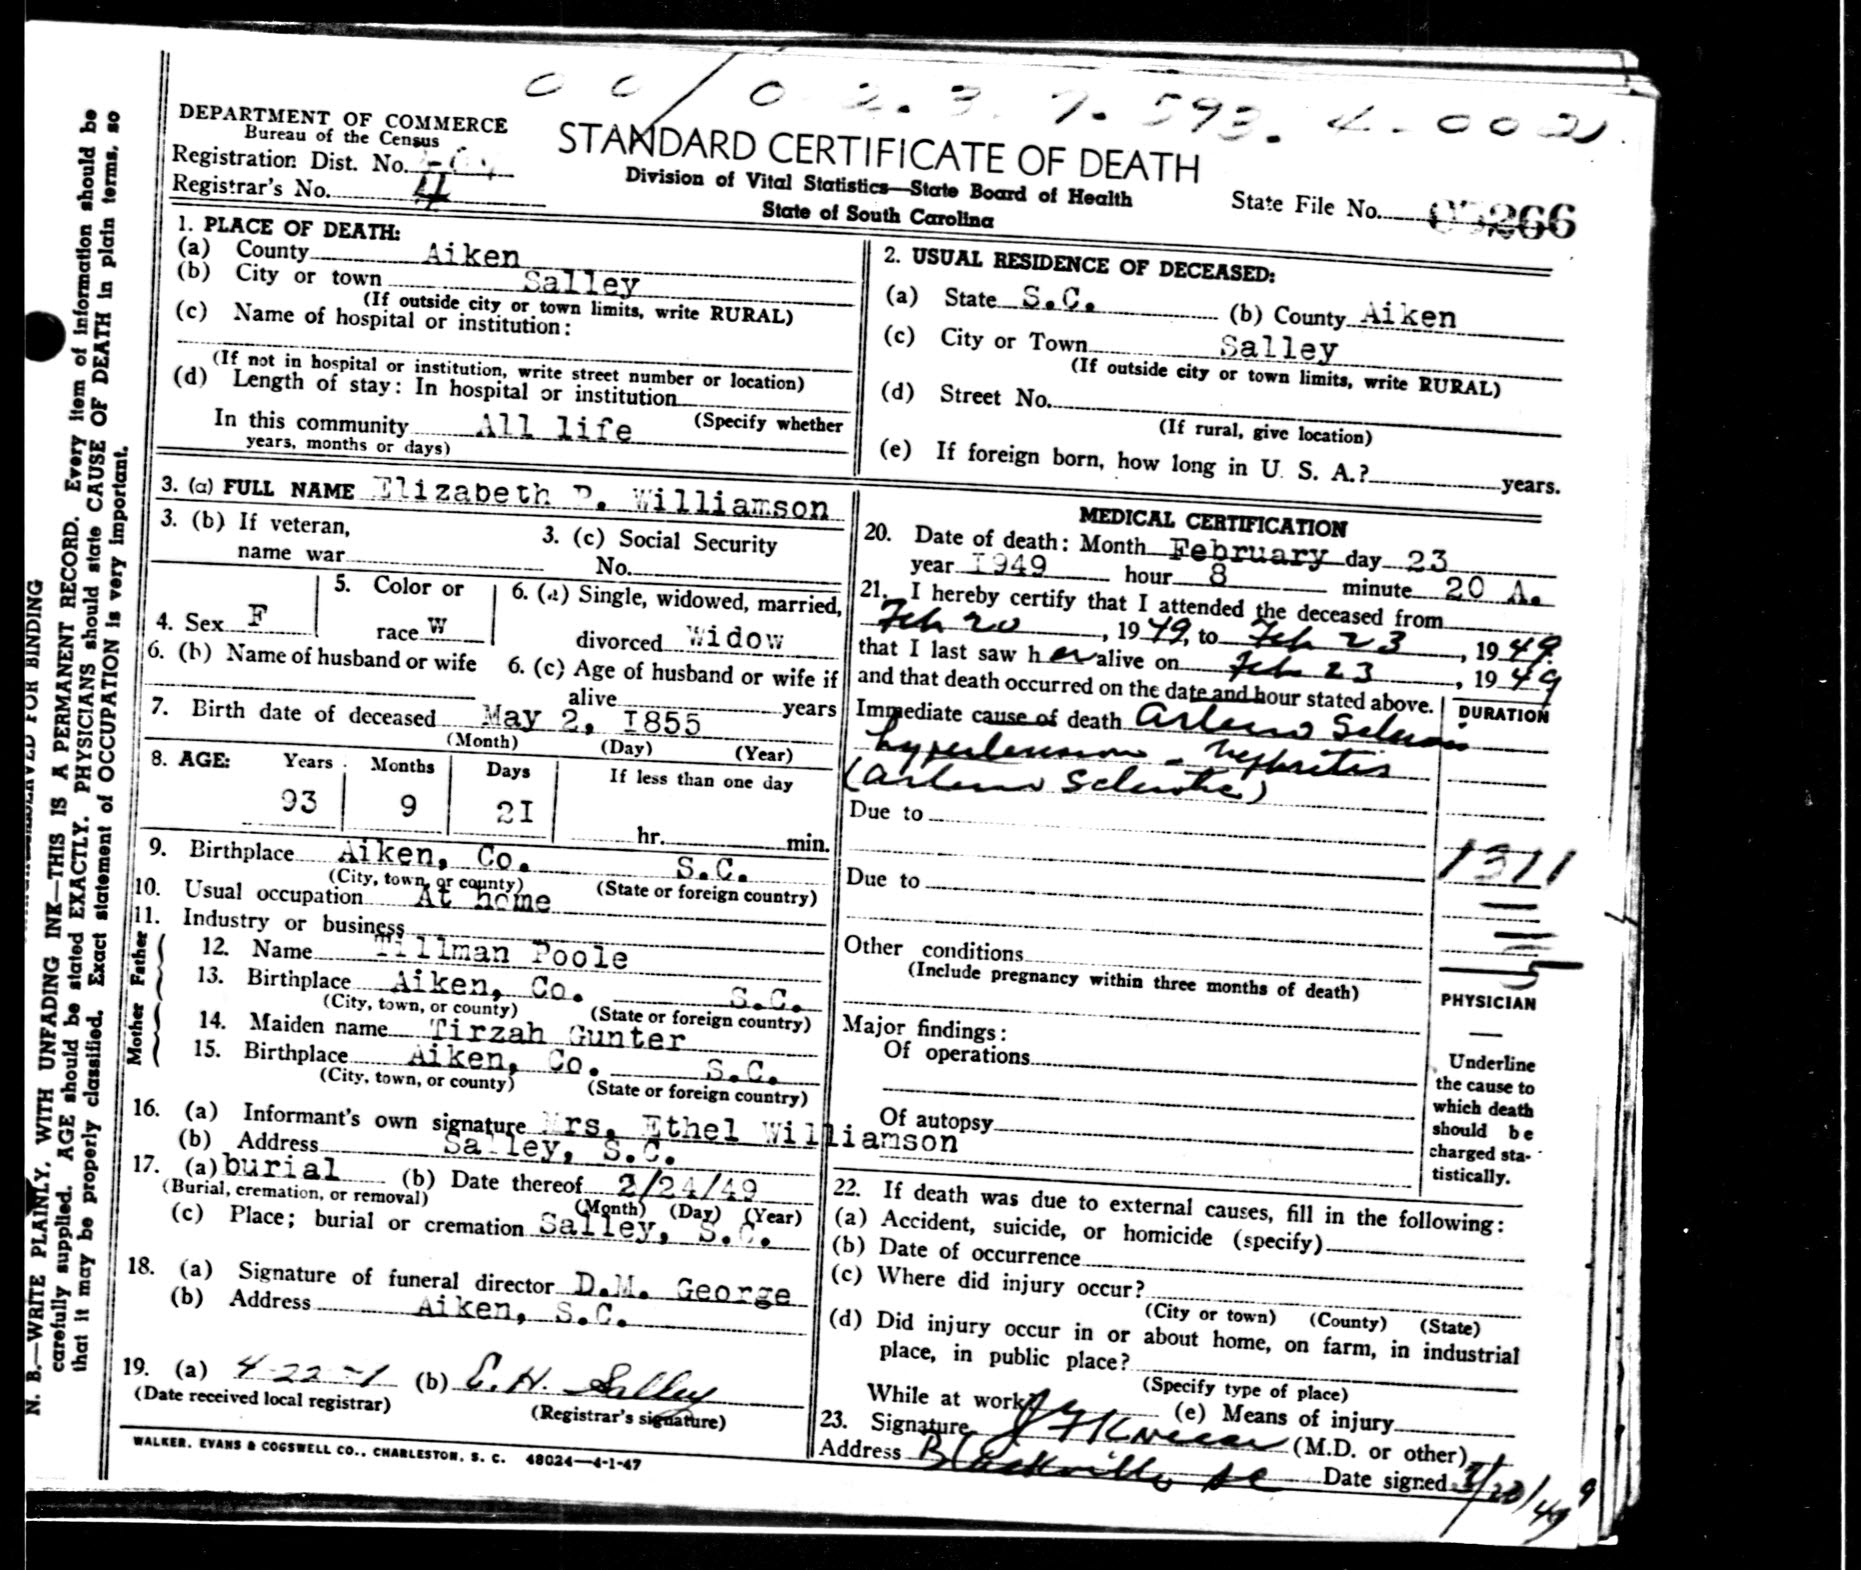 0 0 / 0 2. 3 7. 593. 4-002
DEPARTMENT OF COMMERCE
Bureau of the Census
Registration Dist. No.
Registrar's No. 4
STANDARD CERTIFICATE OF DEATH
Division of Vital Statistics—State Board of Health
State of South Carolina
State File No. 05266
1. PLACE OF DEATH:
(a) County Aiken
(b) City or town Salley
(If outside city or town limits, write RURAL)
(c) Name of hospital or institution:
(If not in hospital or institution, write street number or location)
(d) Length of stay: In hospital or institution
(Specify whether
In this community All life
years, months or days)
2. USUAL RESIDENCE OF DECEASED:
(a) State S.C. (b) County Aiken
(c) City or Town Salley
(If outside city or town limits, write RURAL)
(d) Street No.
(If rural, give location)
(e) If foreign born, how long in U. S. A.? years.
3. (a) FULL NAME Elizabeth P. Williamson
3. (b) If veteran,
name war
3. (c) Social Security
No.
4. Sex F
5. Color or
race W
6. (a) Single, widowed, married,
divorced Widow
6. (b) Name of husband or wife
6. (c) Age of husband or wife if
alive years
7. Birth date of deceased May 2, I855
(Month) (Day) (Year)
8. AGE: Years Months Days If less than one day
93 9 2I hr. min.
9. Birthplace Aiken, Co. S.C.
(City, town, or county) (State or foreign country)
10. Usual occupation At home
11. Industry or business
Father
12. Name Tillman Poole
13. Birthplace Aiken, Co. S.C.
(City, town, or county) (State or foreign country)
Mother
14. Maiden name Tirzah Gunter
15. Birthplace Aiken, Co. S.C.
(City, town, or county) (State or foreign country)
16. (a) Informant's own signature Mrs. Ethel Williamson
(b) Address Salley, S.C.
17. (a) burial (b) Date thereof 2/24/49
(Burial, cremation, or removal) (Month) (Day) (Year)
(c) Place; burial or cremation Salley, S.C.
18. (a) Signature of funeral director D.M. George
(b) Address Aiken, S.C.
19. (a) 4-22-1 (b) E. H. Salley
(Date received local registrar) (Registrar's signature)
WALKER, EVANS & COGSWELL CO., CHARLESTON, S. C. 48024—4-1-47
MEDICAL CERTIFICATION
20. Date of death: Month February day 23
year I949 hour 8 minute 20 A.
21. I hereby certify that I attended the deceased from
Feb 20, 1949, to Feb 23, 1949.
that I last saw her alive on Feb 23, 1949
and that death occurred on the date and hour stated above.
DURATION
Immediate cause of death Arterio Sclerosis
hypertension - nephritis
(Arterio Sclerotic)
Due to
1311
Due to
5
Other conditions
(Include pregnancy within three months of death)
Major findings:
Of operations
Of autopsy
PHYSICIAN
Underline
the cause to
which death
should be
charged sta-
tistically.
22. If death was due to external causes, fill in the following:
(a) Accident, suicide, or homicide (specify)
(b) Date of occurrence
(c) Where did injury occur?
(City or town) (County) (State)
(d) Did injury occur in or about home, on farm, in industrial
place, in public place?
(Specify type of place)
While at work? (e) Means of injury
23. Signature (M.D. or other)
Address Blackville SC Date signed 3/20/49
N. B.—WRITE PLAINLY, WITH UNFADING INK—THIS IS A PERMANENT RECORD. Every item of information should be
carefully supplied. AGE should be stated EXACTLY. PHYSICIANS should state CAUSE OF DEATH in plain terms, so
that it may be properly classified. Exact statement of OCCUPATION is very important.